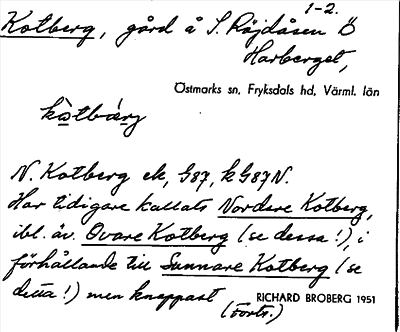 1-2.
Kotberg, gård å S. Röjdåsen Ö
Harberget,
Östmarks sn, Fryksdals hd, Värml. län
N. Kotberg ek, G87, kG87N.
Har tidigare kallats Nordere Kotberg,
ibl. äv. Övare Kotberg (se dessa!), i
förhållande till Sunnare Kotberg (se
detta!) men knappast
(Forts.)
RICHARD BROBERG 1951